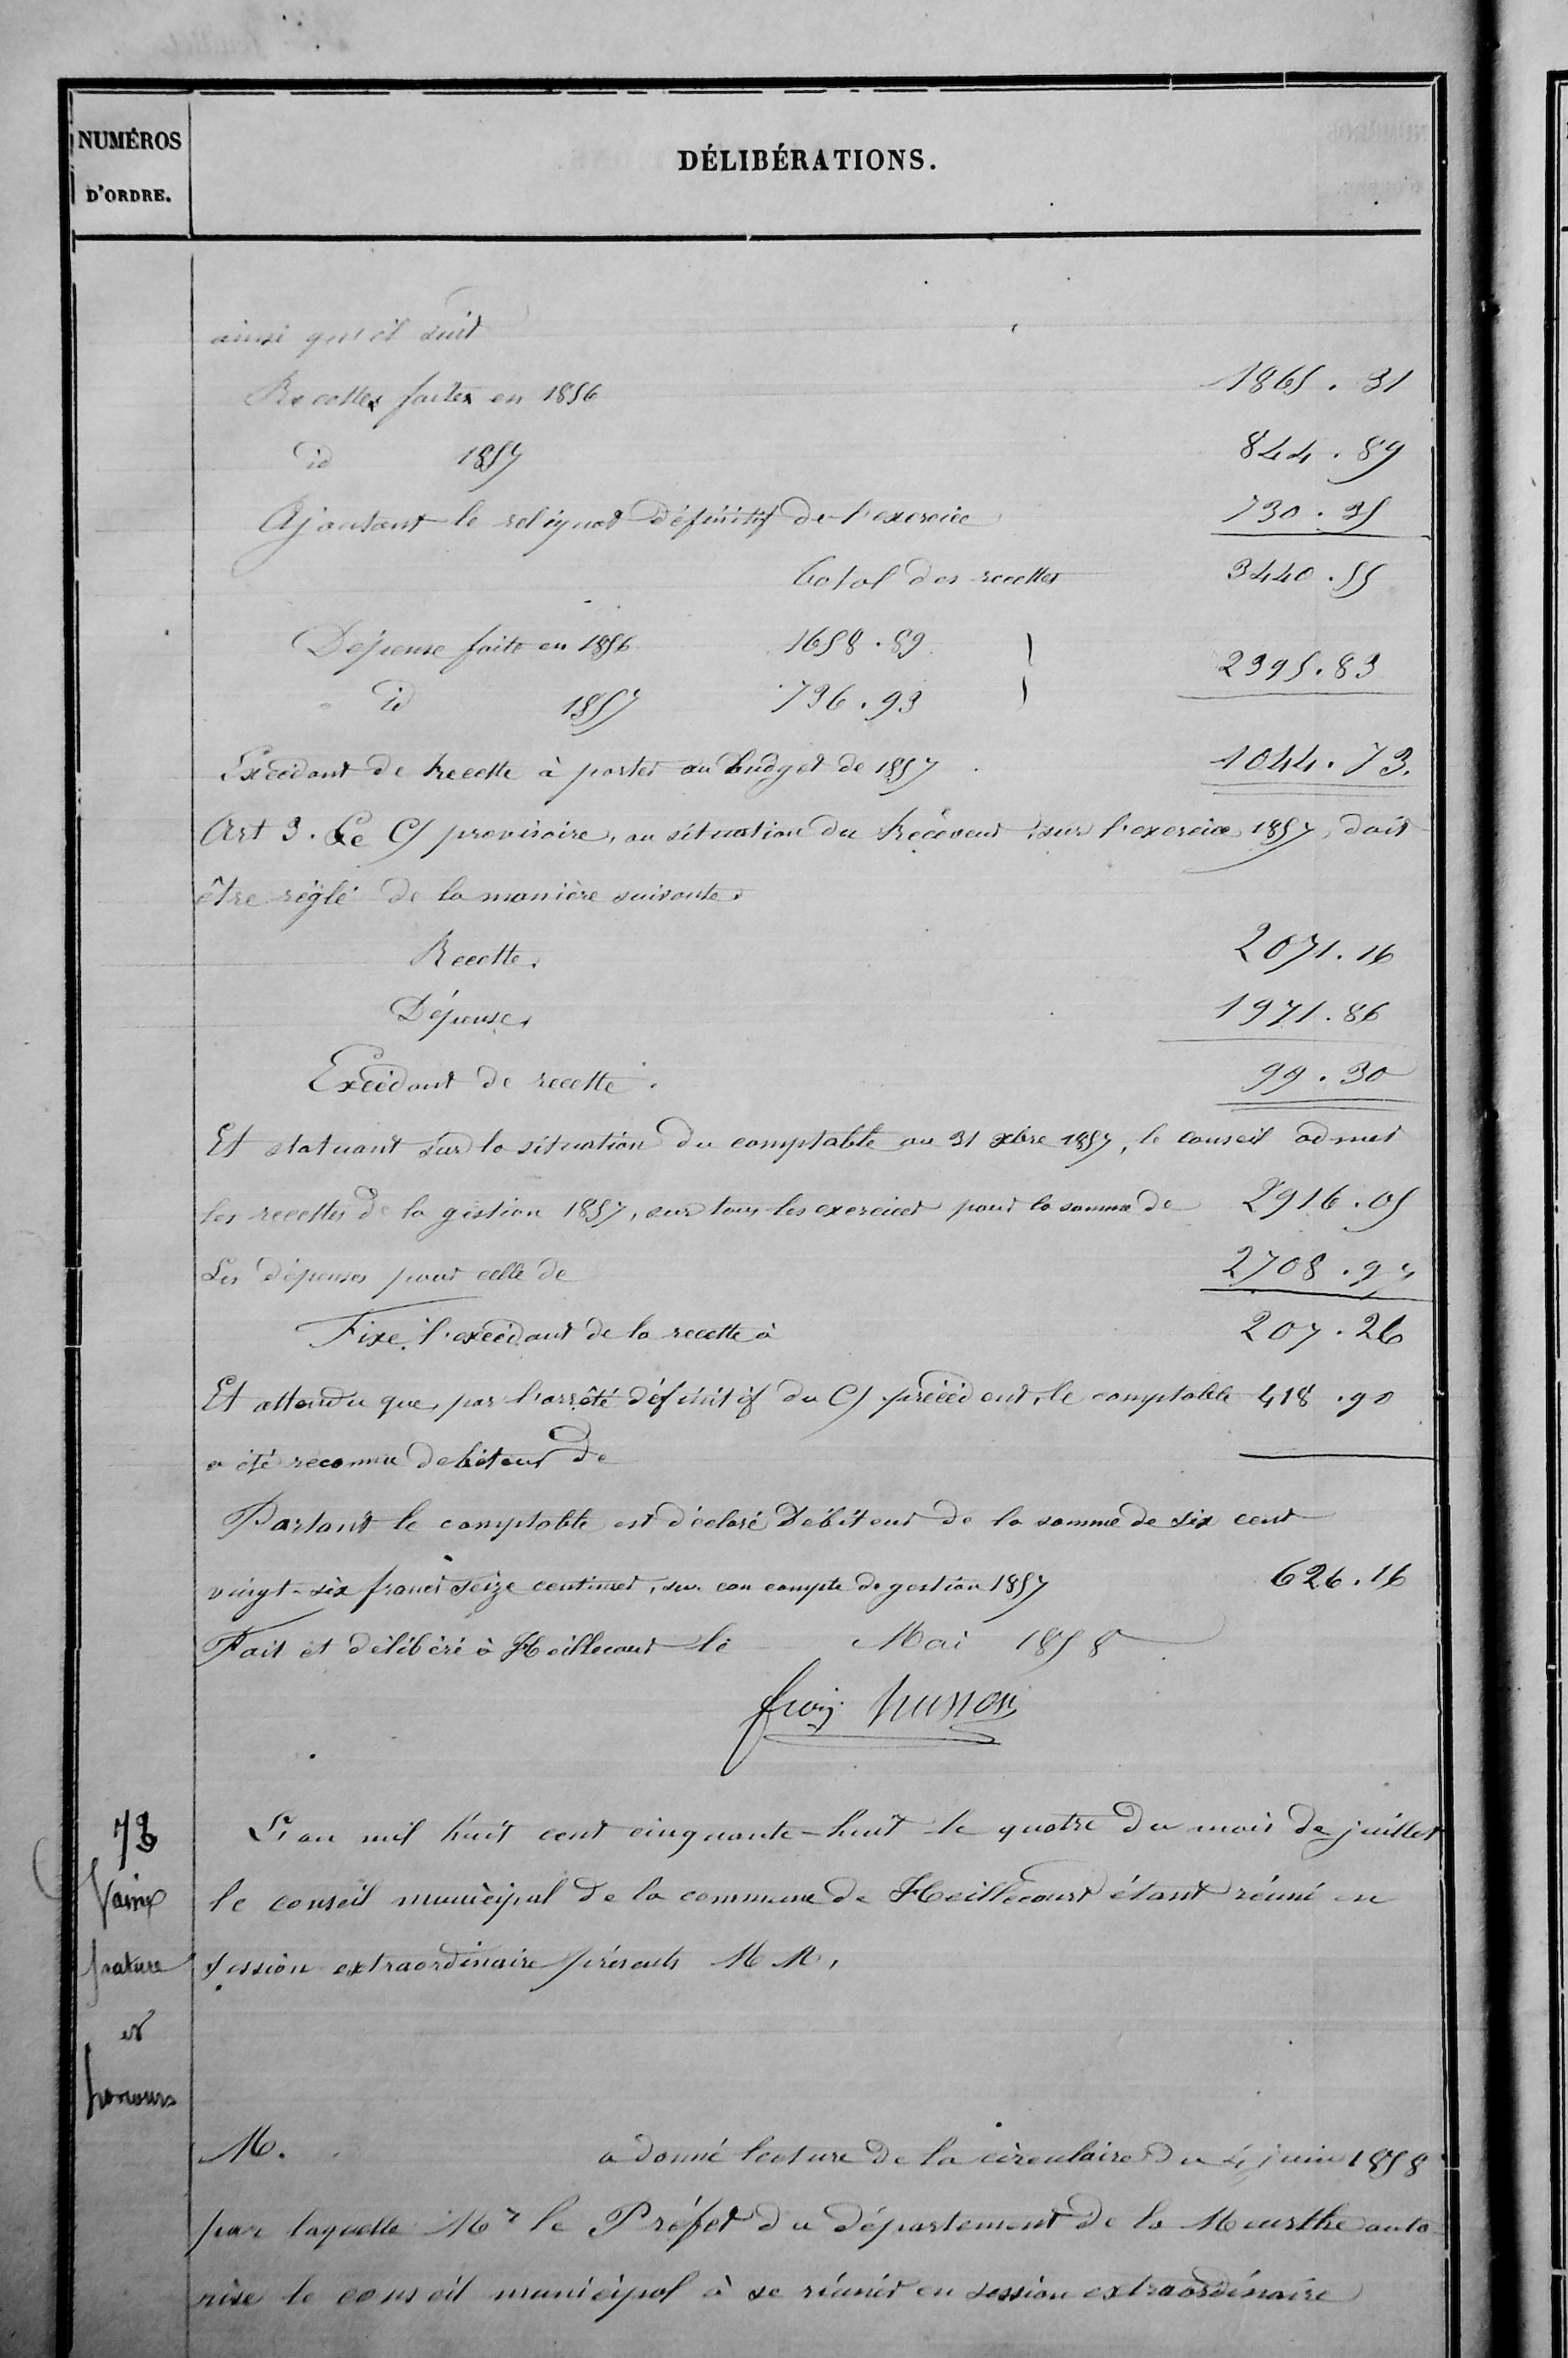 NUMÉROS
D'ORDRE.
DÉLIBÉRATIONS.
ainsi qu'il suit
Recettes faites en 1856 1865.31
id 1857 844.89
Ajoutant le reliquat définitif de l'exercice 730.35
Total des recettes 3440.55
Dépense faite en 1856 1658.89
2395.83
id 1857 736.93
Excédant de recette à porter au budget de 1857 1044.73.
Art 3. Le C/ provisoire, ou situation du Receveur, sur l'exercice 1857, doit
être réglé de la manière suivante.
Recette. 2071.16
Dépense. 1971.86
Excédant de recette. 99.30
Et statuant sur la situation du comptable au 31 xbre 1857, le conseil admet
les recettes de la gestion 1857, sur tous les exercices pour la somme de 2916.05
Les dépenses pour celle de 2708.
Fixe l'excédant de la recette à 207.26
Et attendu que, par l'arrêté définitif du C/ précédent, le comptable 418.90
a été reconnu debiteur de
Partant le comptable est déclaré Débiteur de la somme de six cent
vingt-six francs seize centimes, sur son compte de gestion 1857 626.16
Fait et délibéré à Heillecourt le Mai 1858
franç husson
73
Vaine
pature
et
parcours
L'an mil huit cent cinquante-huit le quatre du mois de juillet
le conseil municipal de la commune de Heillecourt étant réuni en
session extraordinaire présents M M,
M. a donné lecture de la circulaire du 4 juin 1858
par laquelle Mr le Préfet du département de la Meurthe auto-
rise le conseil municipal à se réunir en session extraordinaire